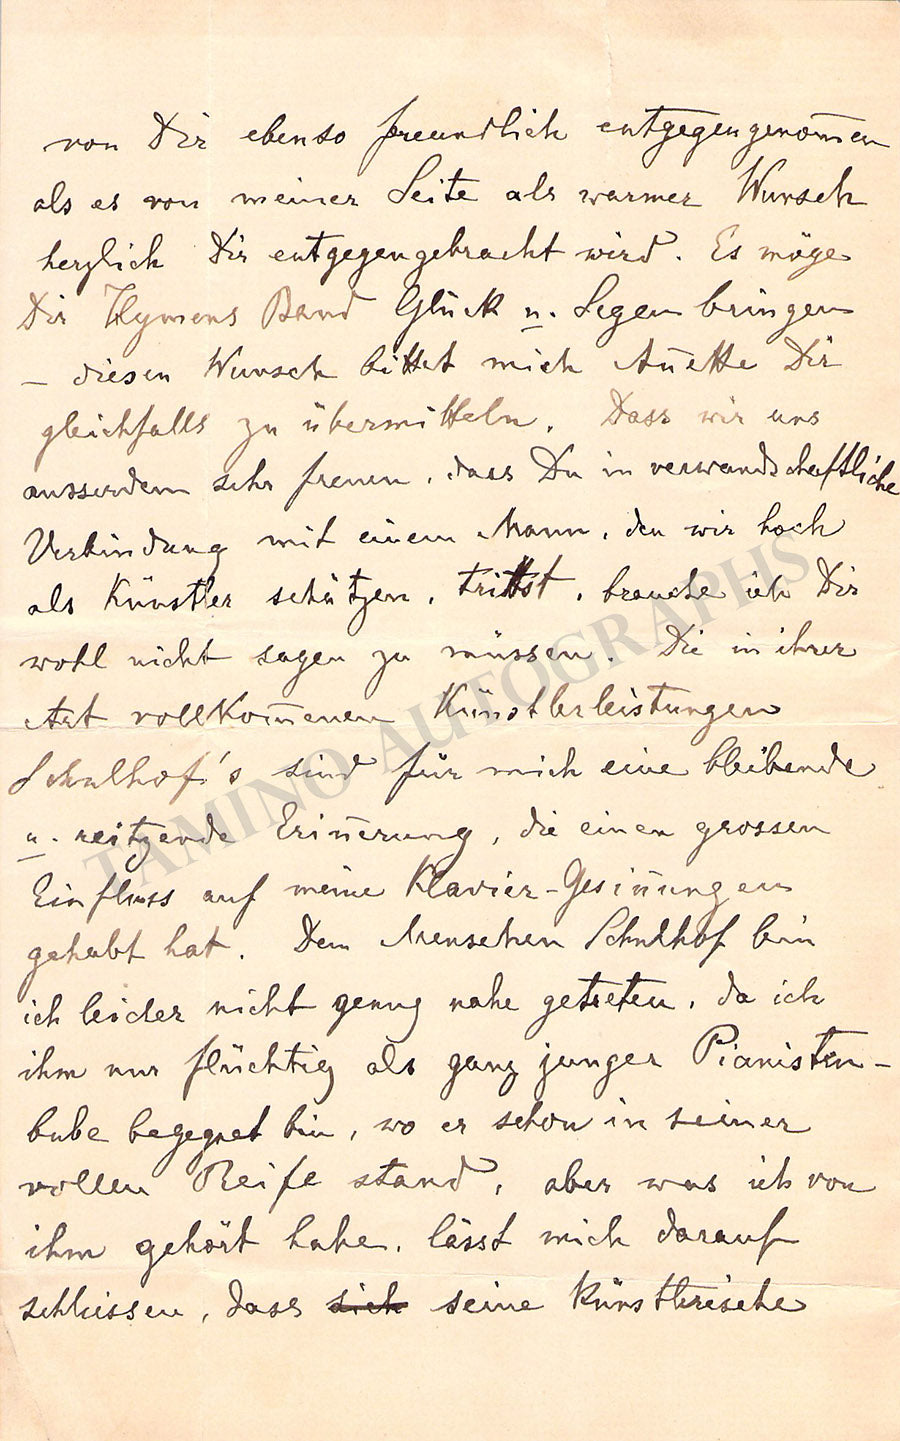 von Dir ebenso freundlich entgegengenom̅en
als es von meiner Seite als warmer Wunsch
herzlich Dir entgegengebracht wird. Es möge
Dir Hymens Band Glück u. Segen bringen
– diesen Wunsch bittet mich An̅ette Dir
gleichfalls zu übermitteln. Dass wir uns
ausserdem sehr freuen, dass Du in verwandschaftliche
Verbindung mit einem Mann, den wir hoch
als Künstler schätzen, trittst, brauche ich Dir
wohl nicht sagen zu müssen. Die in ihrer
Art vollkom̅enen Künstlerleistungen
Schulhof's sind für mich eine bleibende
u. reitzende Erin̅erung, die einen grossen
Einfluss auf meine Klavier-Gesin̅ungen
gehabt hat. Dem Menschen Schulhof bin
ich leider nicht genug nahe getreten, da ich
ihm nur flüchtig als ganz junger Pianisten-
bube begegnet bin, wo er schon in seiner
vollen Reife stand, aber was ich von
ihm gehört habe, lässt mich darauf
schliessen, dass sich seine künstlerische
TAMINO AUTOGRAPHS